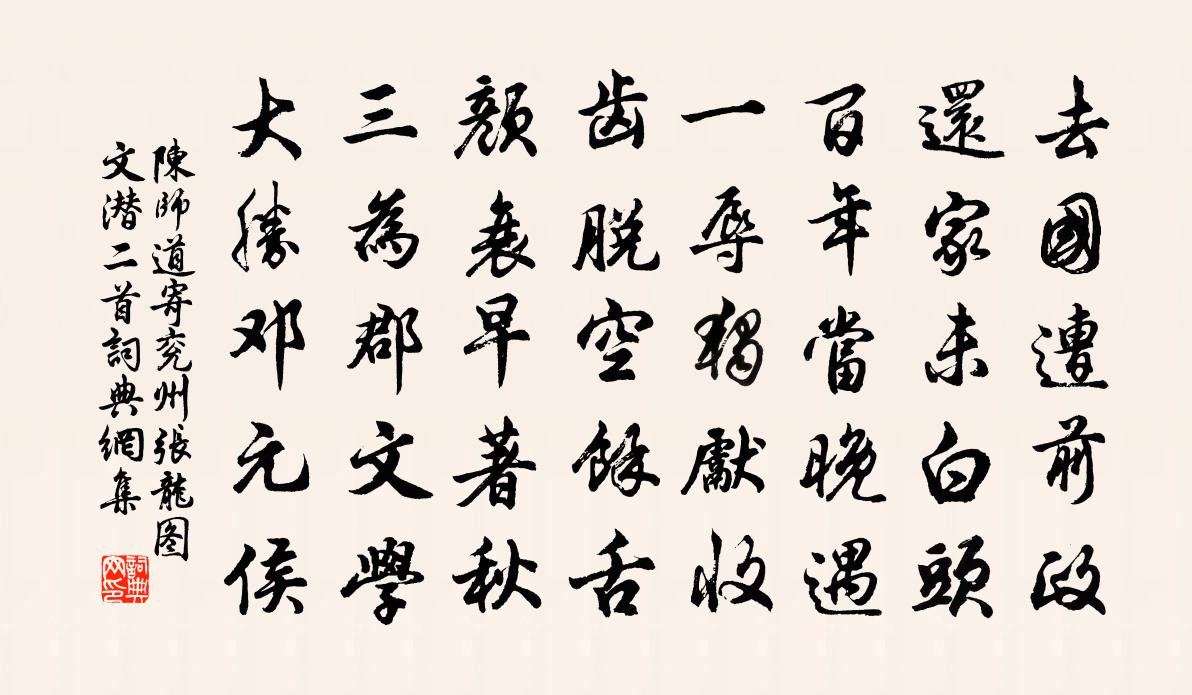 去國遭前政
還家未白頭
百年當晚遇
一辱獨獻收
齿脱空餘舌
顏衰早著秋
三為郡文學
大勝邓元侯
陳師道寄兖州張龍图
文潜二首詞典網集
詞典网印